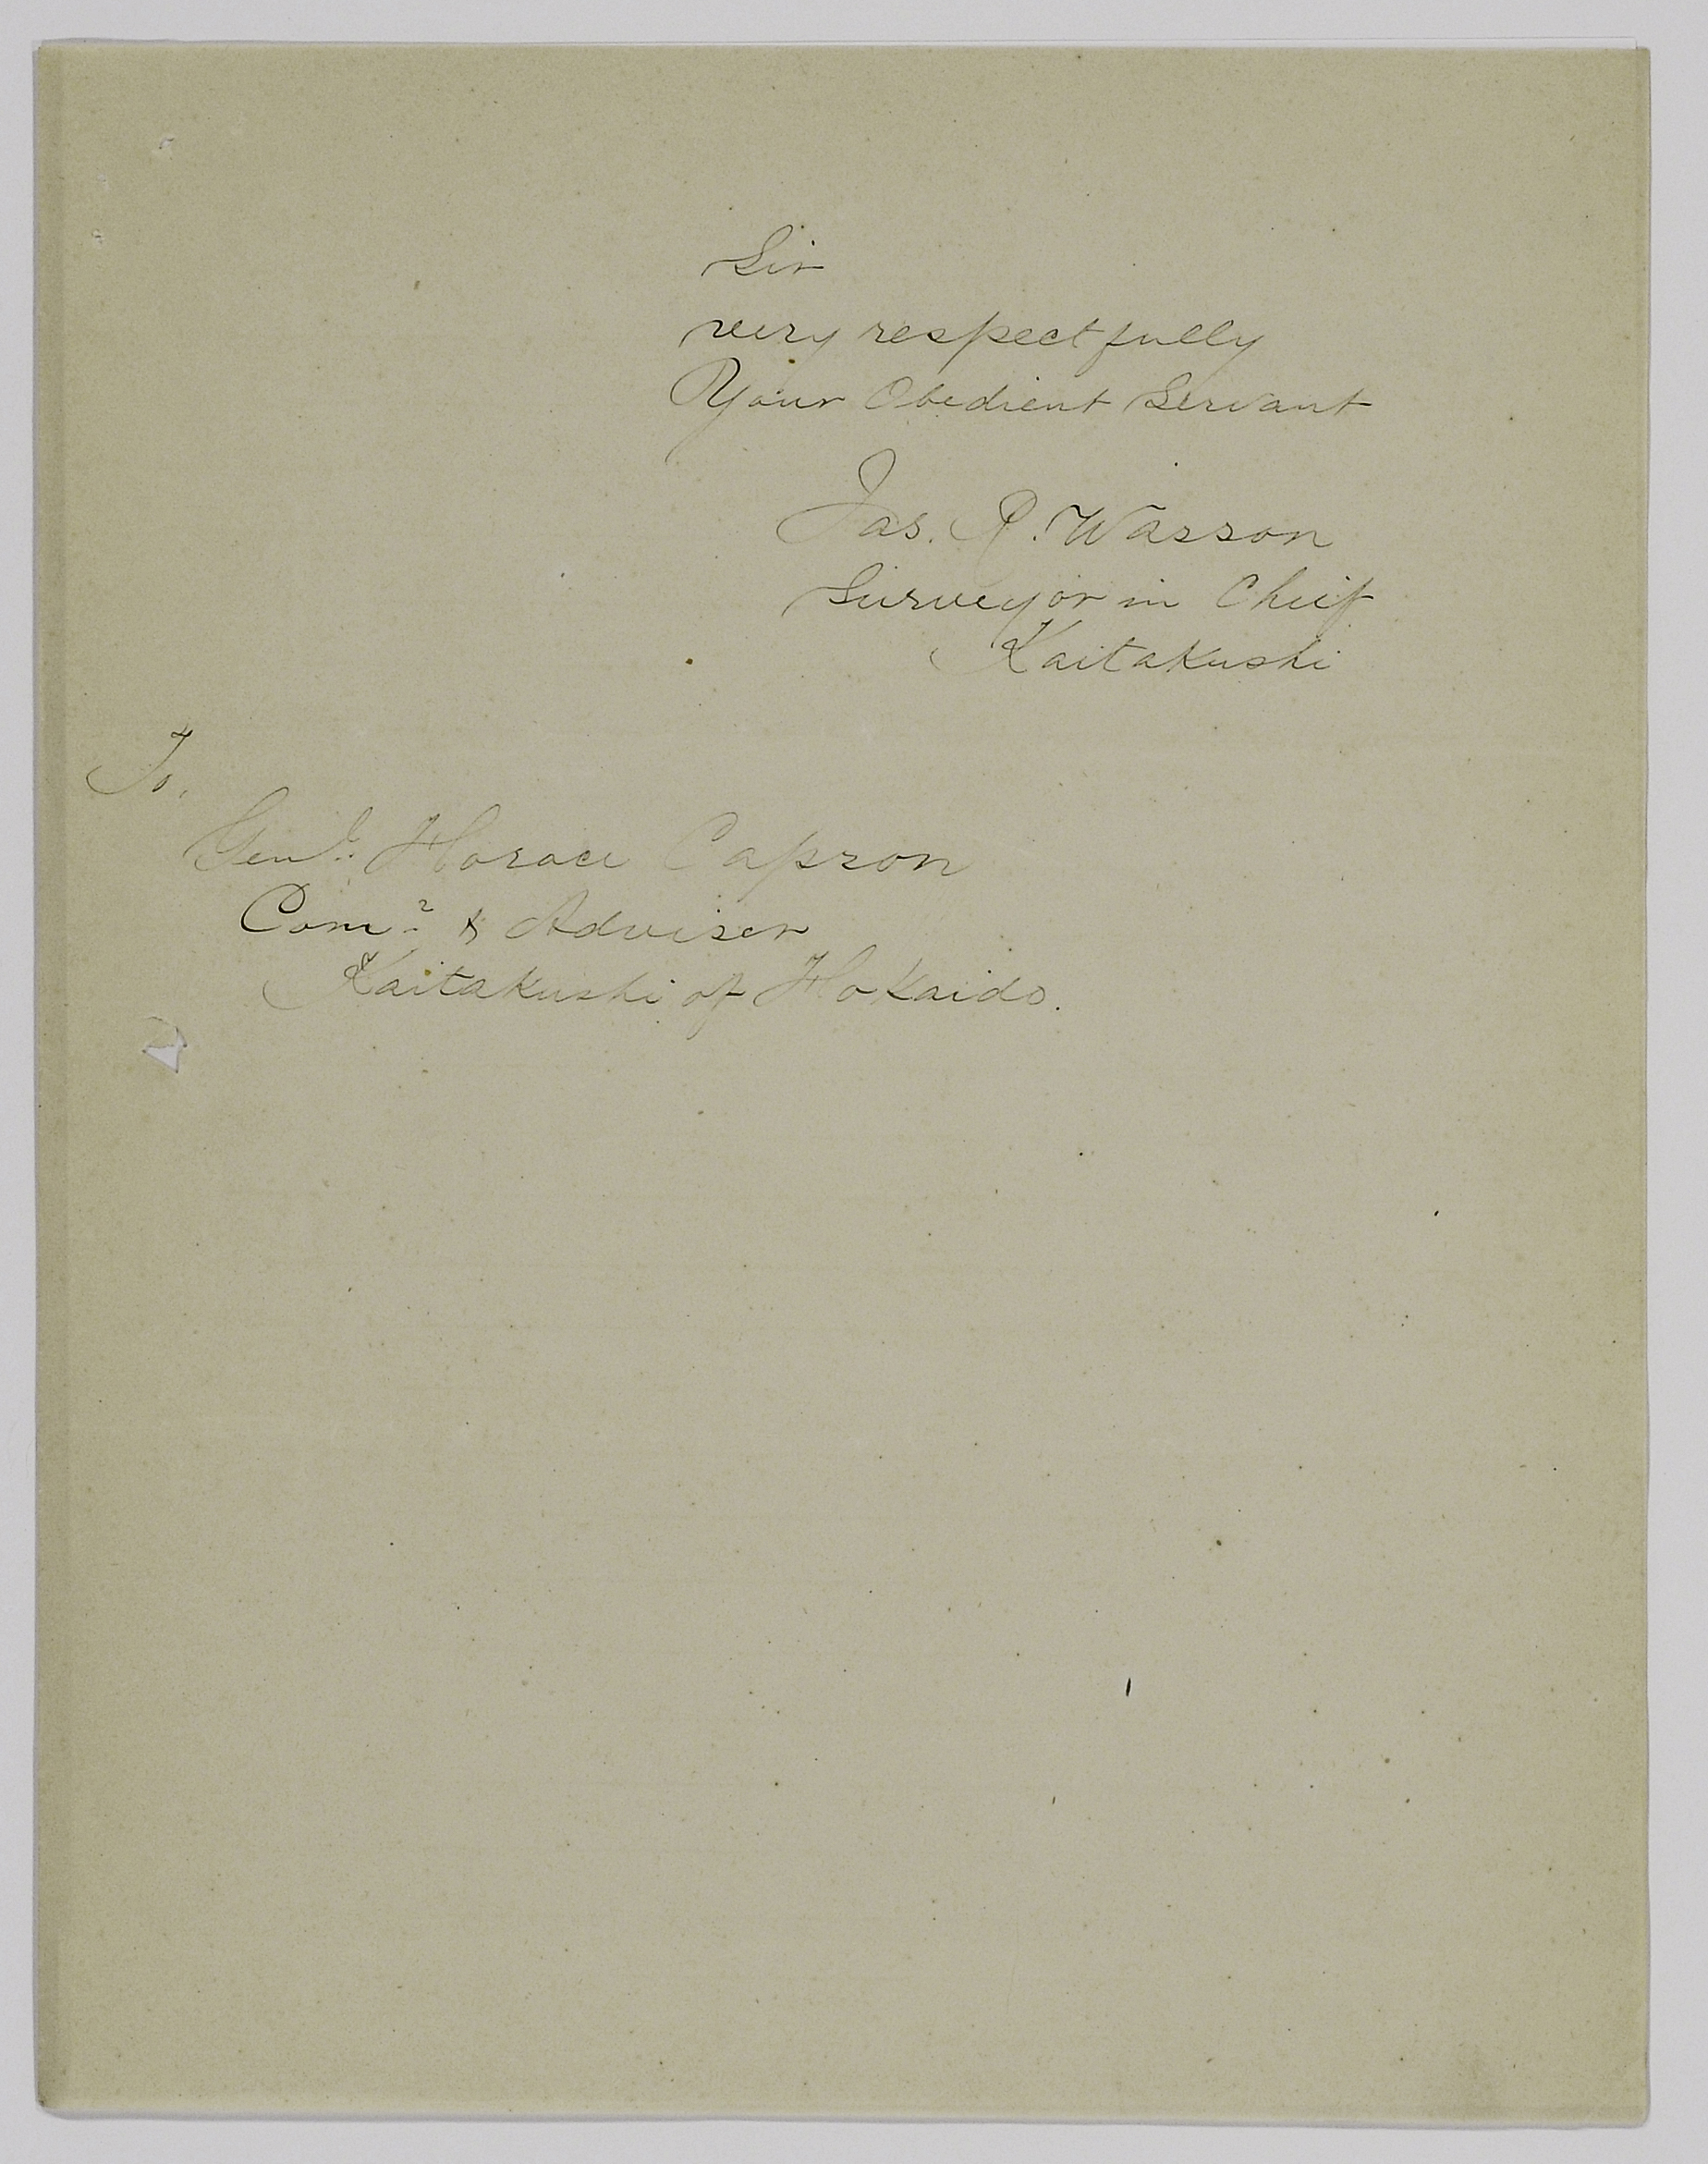 Sir
very respectfully
Your Obedient Servant
Jas. R. Wasson
Surveyor in Chief
Kaitakushi
To,
Genl. Horace Capron
Comr. & Adviser
Kaitakushi of Hokaido.